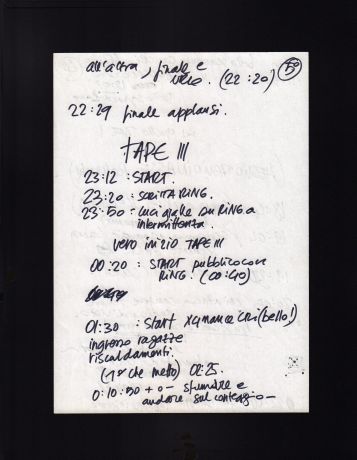 all'altra, finale e
vero. (22:20) 50
22:29 finale applausi.
TAPE III
23:12 : START.
23:20 : SCRITTA RING.
23:50 : luci gialle su RING a
intermittenza.
vero inizio TAPE III
00:20 : START pubblico con
RING. (00:40)
01:30 : start (bello!)
ingresso ragazze
riscaldamenti.
(1º che metto) 01:25.
0:10:30 + 0 - sfumare e
andare sul conteggio -